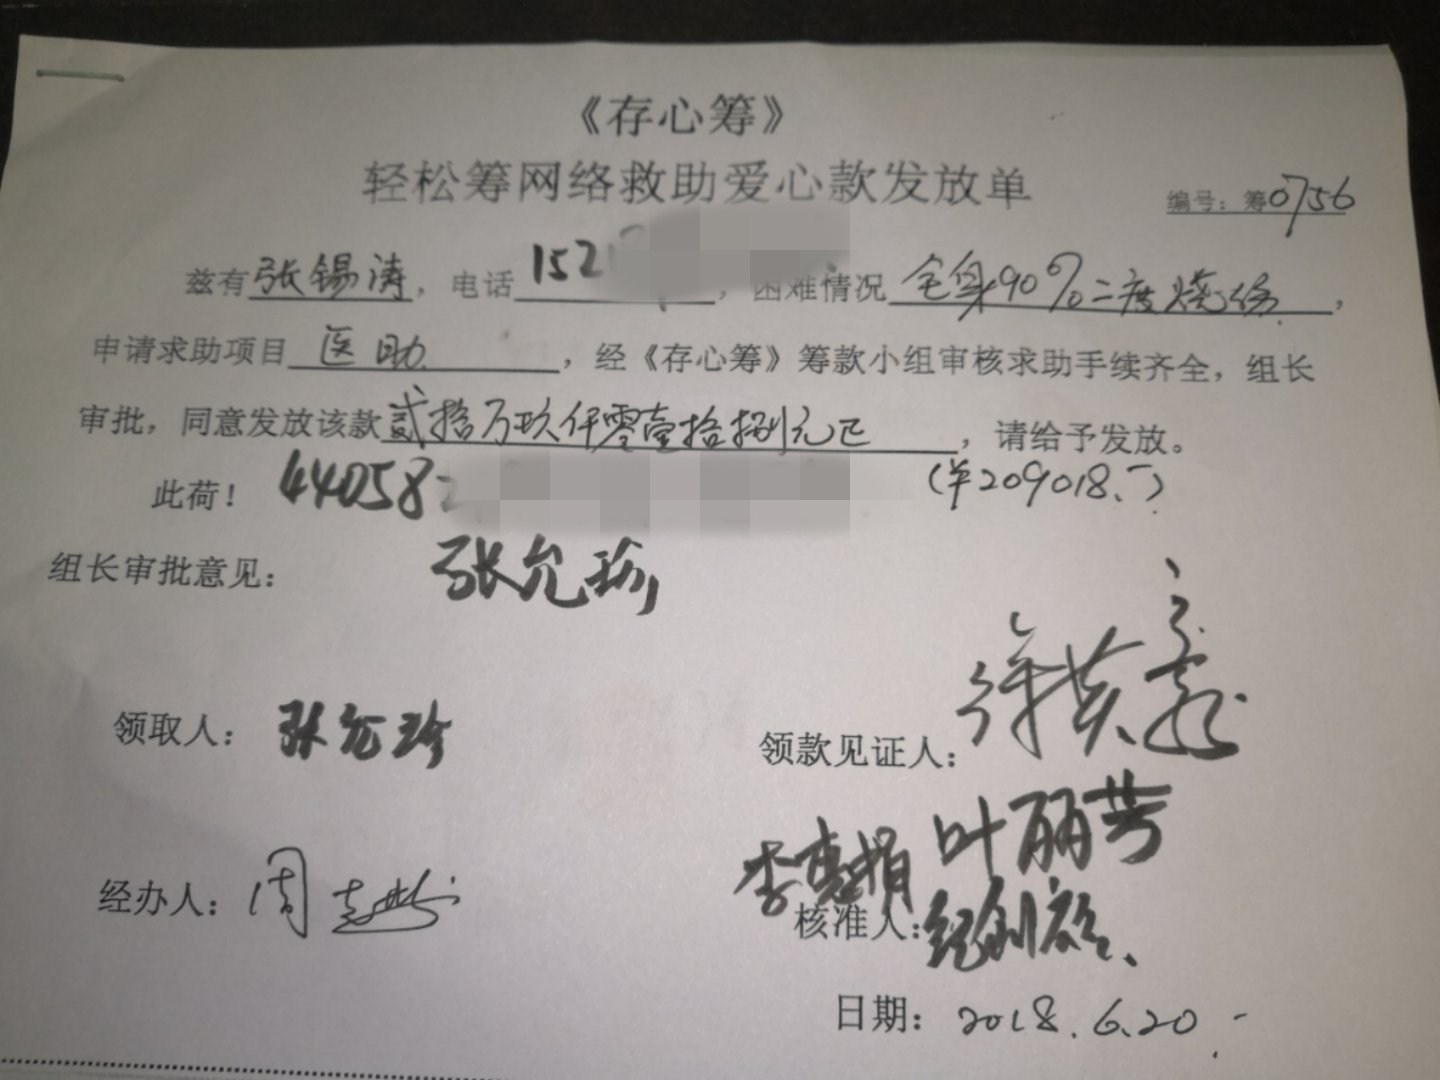 《存心筹》
轻松筹网络救助爱心款发放单
编号：筹0756
兹有张锡涛，电话152，困难情况全身90%二度烧伤，
申请求助项目医助，经《存心筹》筹款小组审核求助手续齐全，组长
审批，同意发放该款贰拾万玖仟零壹拾捌元正，请给予发放。
此荷！ 44058 (¥209018.-)
组长审批意见： 张允珍
领取人： 张允珍
领款见证人：
叶丽芳
经办人：周
核准人：
日期：2018.6.20